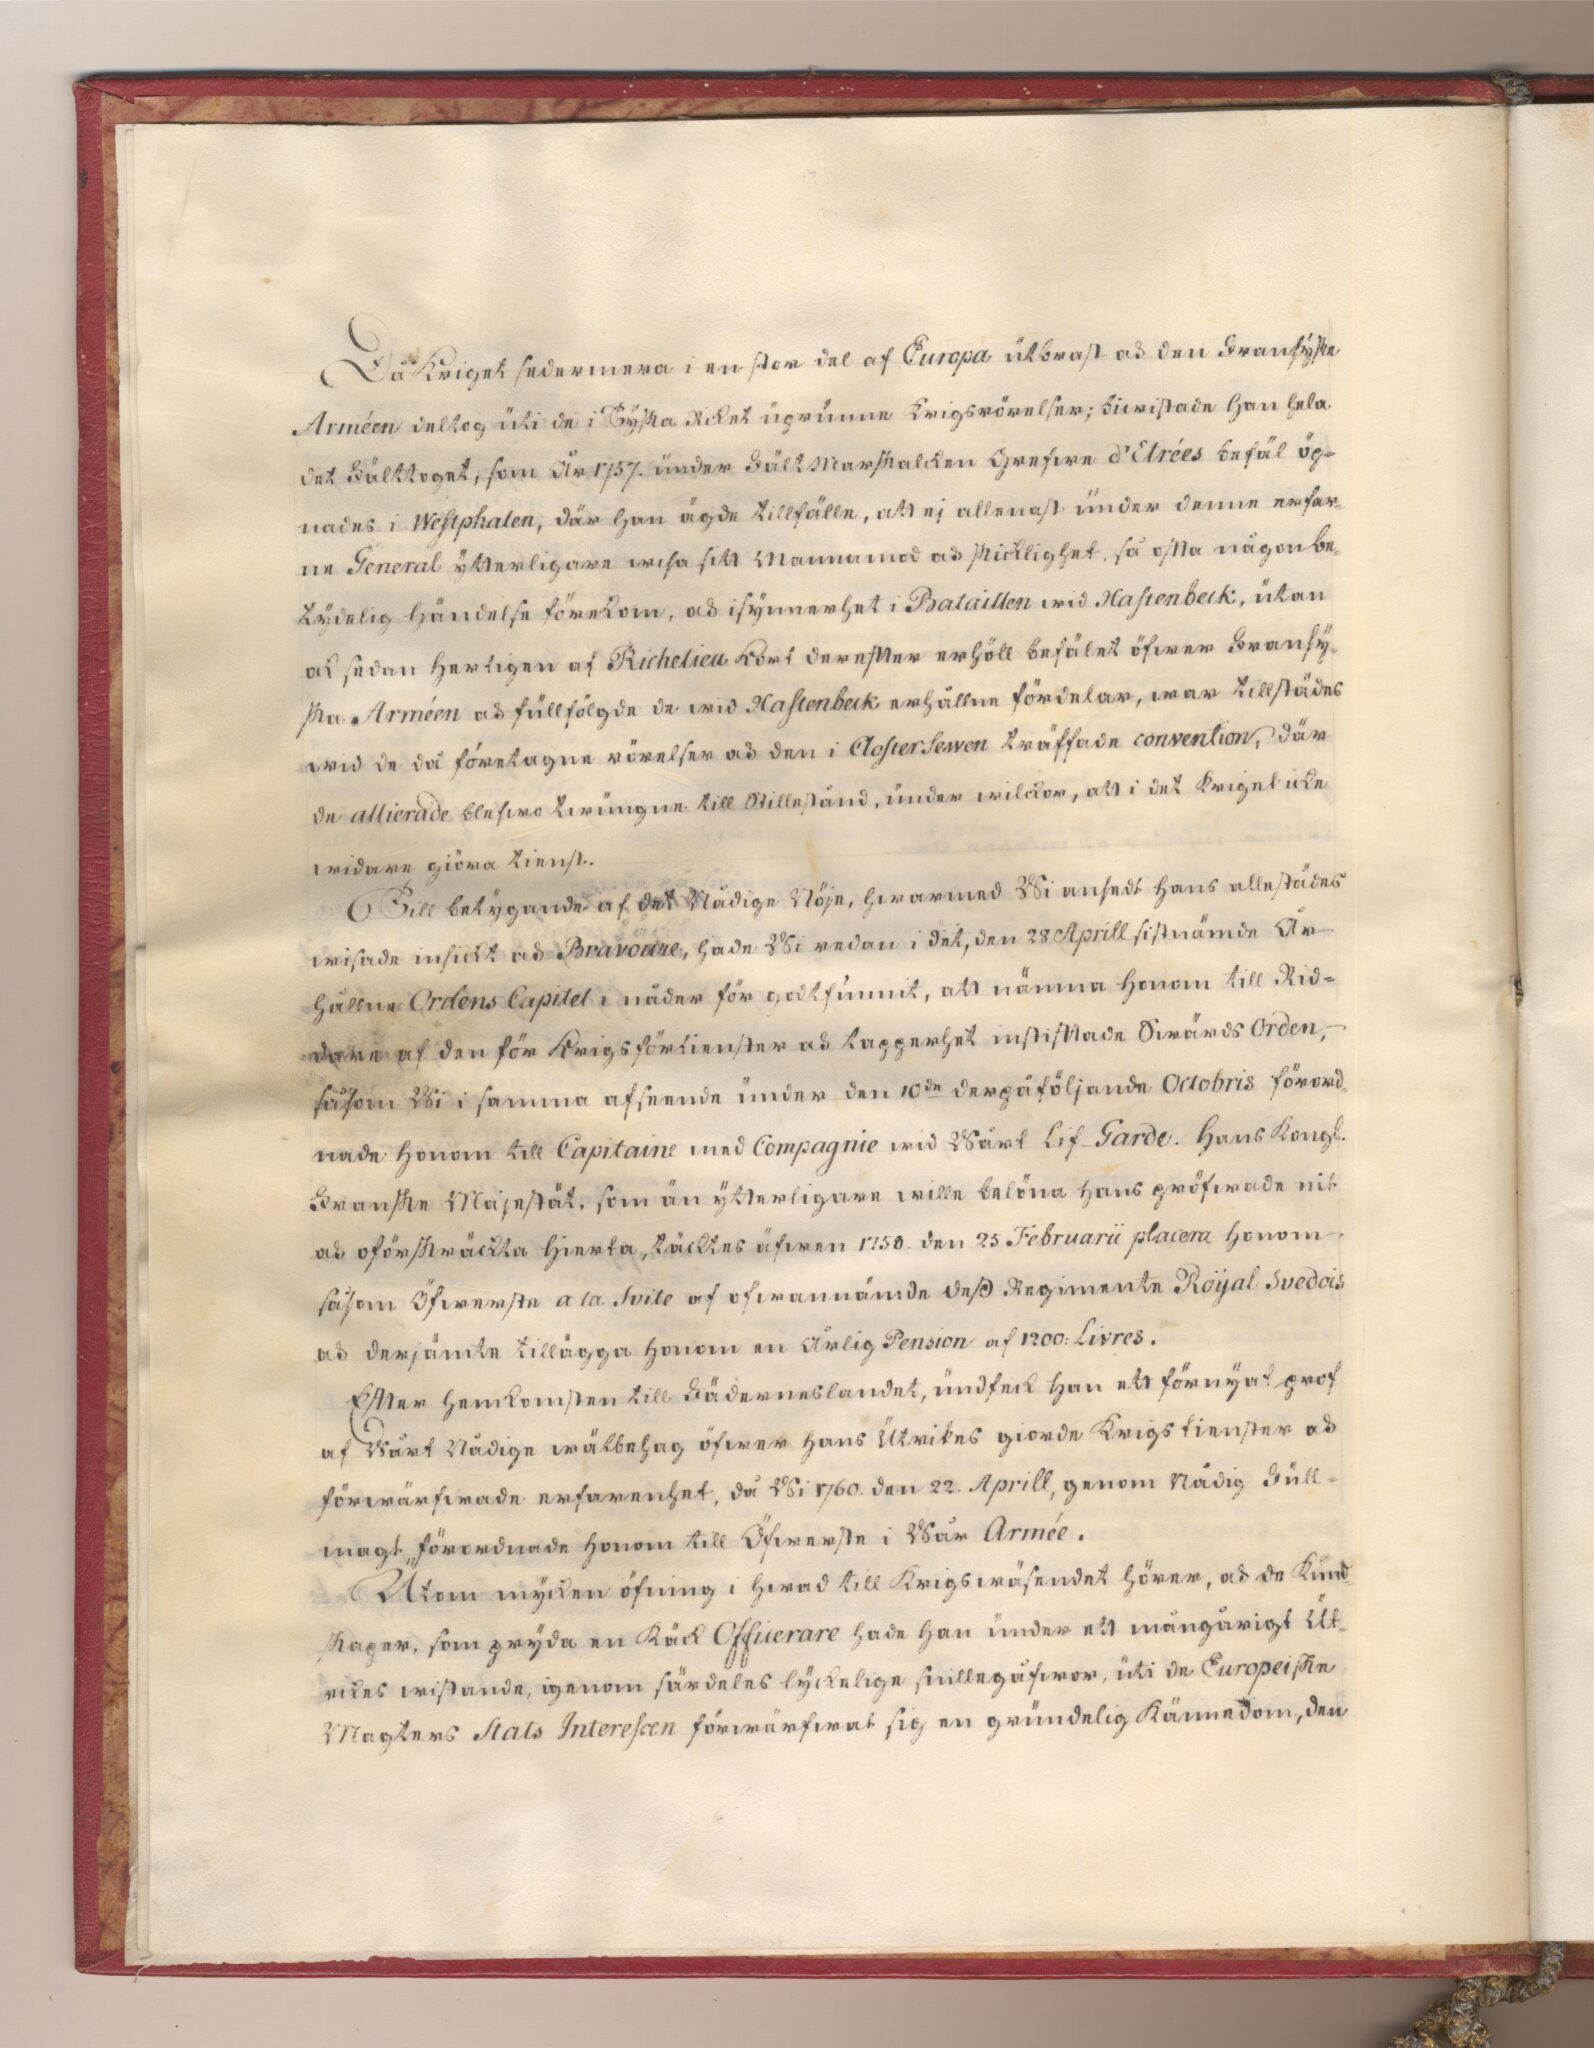 Då Kriget sedermera i en stor del af Europa utbrast och den Fransyske
Arméen deltog uti de i Tyska Riket uprunne Krigsrörelser; biwistade han hela
det Fälttoget, som År 1757. under Fält Marskalcken Grefwe d'Etrées befäl öp-
nades i Westphalen, där han ägde tillfälle, att ej allenast under denne erfar-
ne General ytterligare wisa sitt Mannamod och skicklighet, så ofta någon be-
tydelig händelse förekom, och isynnerhet i Bataillen wid Hastenbeck, utan
ock sedan Hertigen af Richelieu kort derefter erhöll befälet öfwer Fransy-
ska Arméen och fullfölgde de wid Hastenbeck erhållne fördelar, war tillstädes
wid de då företagne rörelser och den i Closter Sewen träffade convention, där
de allierade blefwo twungne till Stillestånd, under wilckor, att i det Kriget icke
widare giöra tienst.
Till betygande af det Nådige Nöje, hwarmed Wi ansedt hans allestädes
wisade insickt och Bravoure, hade Wi redan i det, den 28 Aprill sistnämde År
hållne Ordens Capitel i nåder för godt funnit, att nämna honom till Rid-
dare af den för Krigsförtienster och tapperhet instiftade Swärds Orden,
såsom Wi i samma afseende under den 10de derpåföljande Octobris förord-
nade honom till Capitaine med Compagnie wid Wårt Lif-Garde. Hans Kongl.
Franske Majestät, som än ytterligare wille belöna hans pröfwade nit
och oförskräckta hierta, täcktes äfwen 1758. den 25 Februarii placera honom
såsom Öfwerste a la Svite af ofwannämde dess Regimente Röyal Svedois
och derjämte tillägga honom en Årlig Pension af 1200: Livres.
Efter hemkomsten till Fäderneslandet, undfeck han ett förnyat prof
af Wårt Nådige wälbehag öfwer hans Utrikes giorde Krigstienster och
förwärfwade erfarenhet, då Wi 1760. den 22. Aprill, genom Nådig Full-
magt, förordnade honom till Öfwerste i Wår Armée.
Utom mycken öfning i hwad till Krigswäsendet hörer, och de Kund-
skaper, som pryda en Käck Officerare hade han under ett mångårigt Ut-
rickes wistande, igenom särdeles lyckelige snillegåfwor, uti de Europeiske
Magters Stats Interessen förwärfwat sig en grundelig Kännedom, den